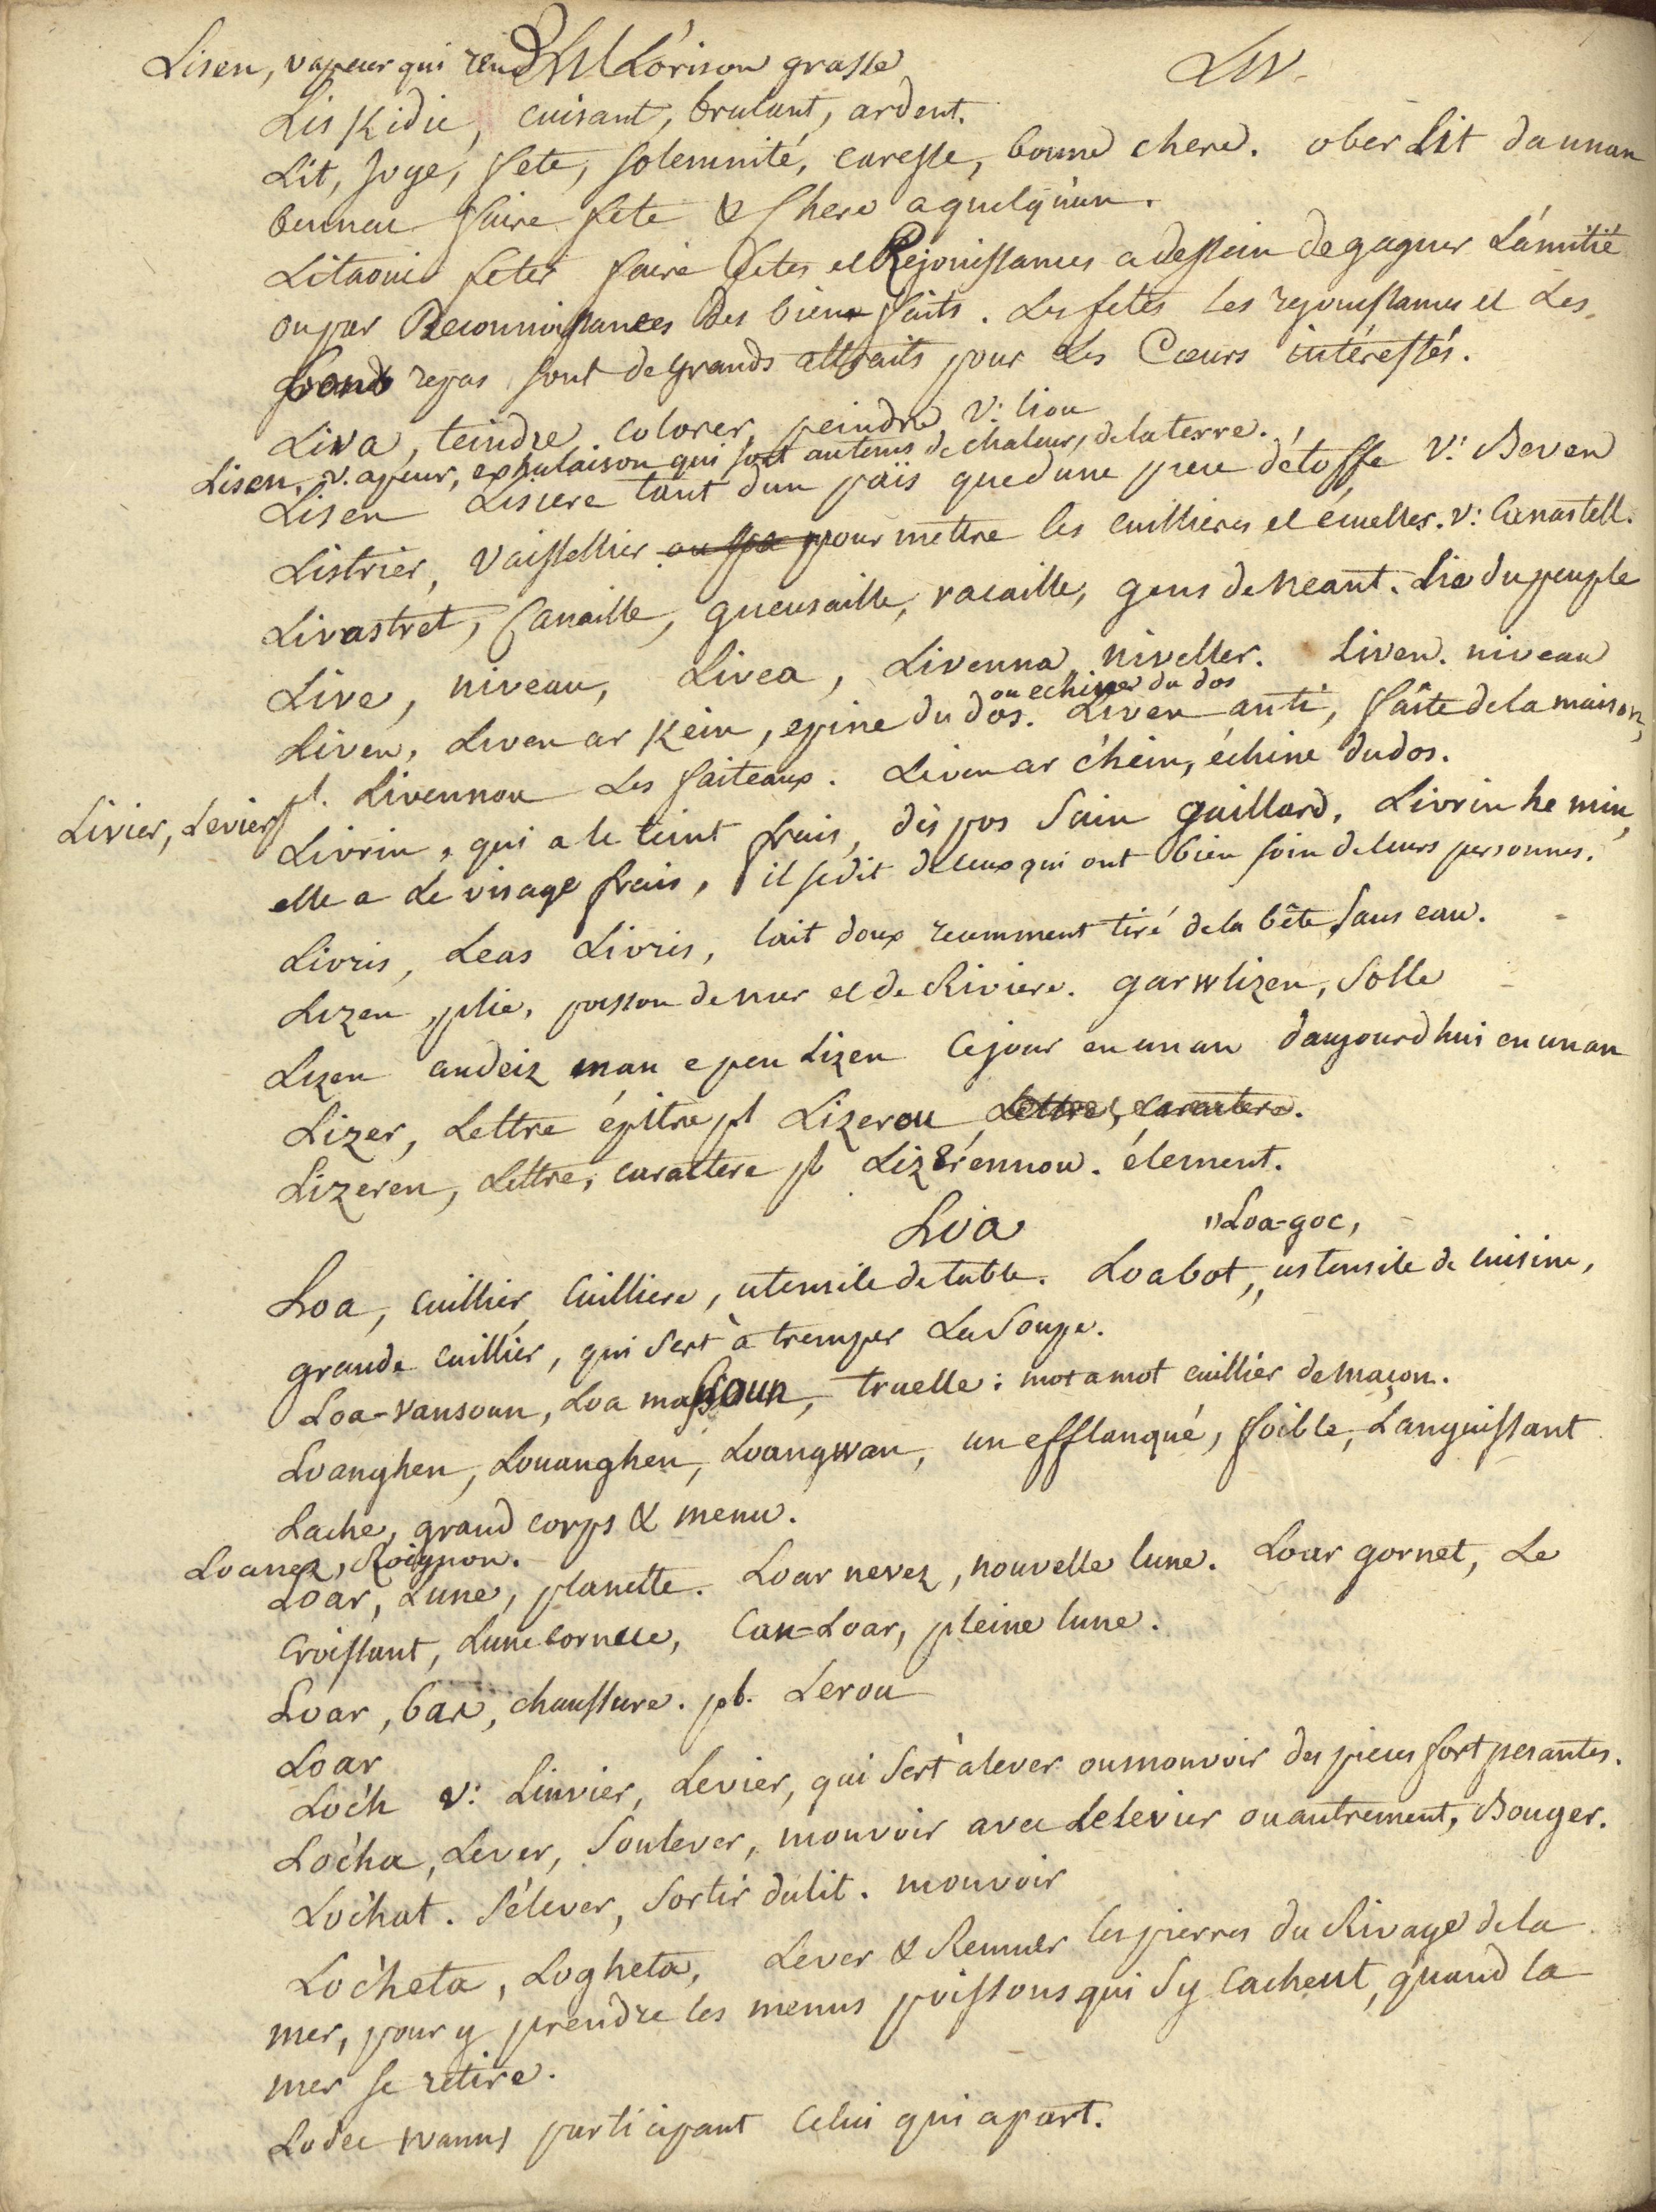 Lisen, vapeur qui rend L'orison grasse
Lis
Liv.
Liskidic, cuisant, brulant, ardent.
Lit, joye, fete, solemnité, caresse, bonne chere. ober Lit da unan
bennac faire fete & chere a quelqu'un.
Litaoui feter faire fetes et Rejouissances a dessein de gagner L'amitié
ou par Reconnoissances des bien faits. Les fetes les rejouissances et Les
Grands repas sont de grands attraits pour Les Cœurs intéressés.
Liva, teindre, colorer, peindre, V: liou
Lisen, vapeur, exhalaison qui sort autems de chaleur, dela terre.
Lisen Lisiere tant d'un païs que d'une piece d'étoffe V: Beven
Listrier, Vaissellier pour mettre les cuillieres et ecuelles. V: Canastell.
Livastret, Canaille, gueusaille, racaille, gens de neant. Lie du peuple
Live, niveau, Livea, Livenna niveller. Liven. niveau
ou echine du dos
Liven, Liven ar Kein, epine du dos. Liven an ti, faîte de la maison,
pl. Livennou Les faiteaux. Liven ar c'hein, échine du dos.
Livier, Levier
Livrin, qui a le teint frais, dispos sain gaillard, Livrin he min,
elle a Le visage frais, il se dit de ceux qui ont bien soin de leurs personnes.
Livris, Leas Livris, lait doux recemment tiré de la bête sans eau.
Lizen, plie, poisson de mer et de Riviere. garwlizen, Solle
Lizen an deiz man e pen Lizen Ce jour en un an d'aujourd'hui en un an
Lizer, Lettre épitre pl Lizerou Lettre, caractere.
Lizeren, Lettre, caractere pl Lizérennou. élement.
Loa
"Loa-goc,
Loa, cuillier, Cuilliere, utensile de table. Loabot, ustensile de cuisine,
grande cuillier, qui sert à tremper La Soupe.
Loa-vansoun, Loa massoun, truelle: mot a mot cuillier de maçon.
Loanghen, Louanghen, Loangwan, un efflanqué, foible, Languissant
Lache, grand corps & menu.
Loanez, Roignon.
Loar, Lune, planette. Loar nevez, nouvelle lune. Loar gornet, Le
Croissant, Lune cornue, Can-Loar, pleine lune.
Loar, bas, chaussure. pl. Lerou
Loar
Loc'h V: Linvier, Levier, qui sert a lever ou mouvoir des pieces fort pesantes.
Loc'ha, Lever, Soulever, mouvoir avec Le levier ou autrement, Bouger.
Loc'hat. S'élever, Sortir du lit. mouvoir
Loc'heta, Logheta, Lever & Remuer les pierres du Rivage de la
mer, pour y prendre les menus poissons qui s'y Cachent, quand la
mer se retire.
Lodec participant Celui qui a part.